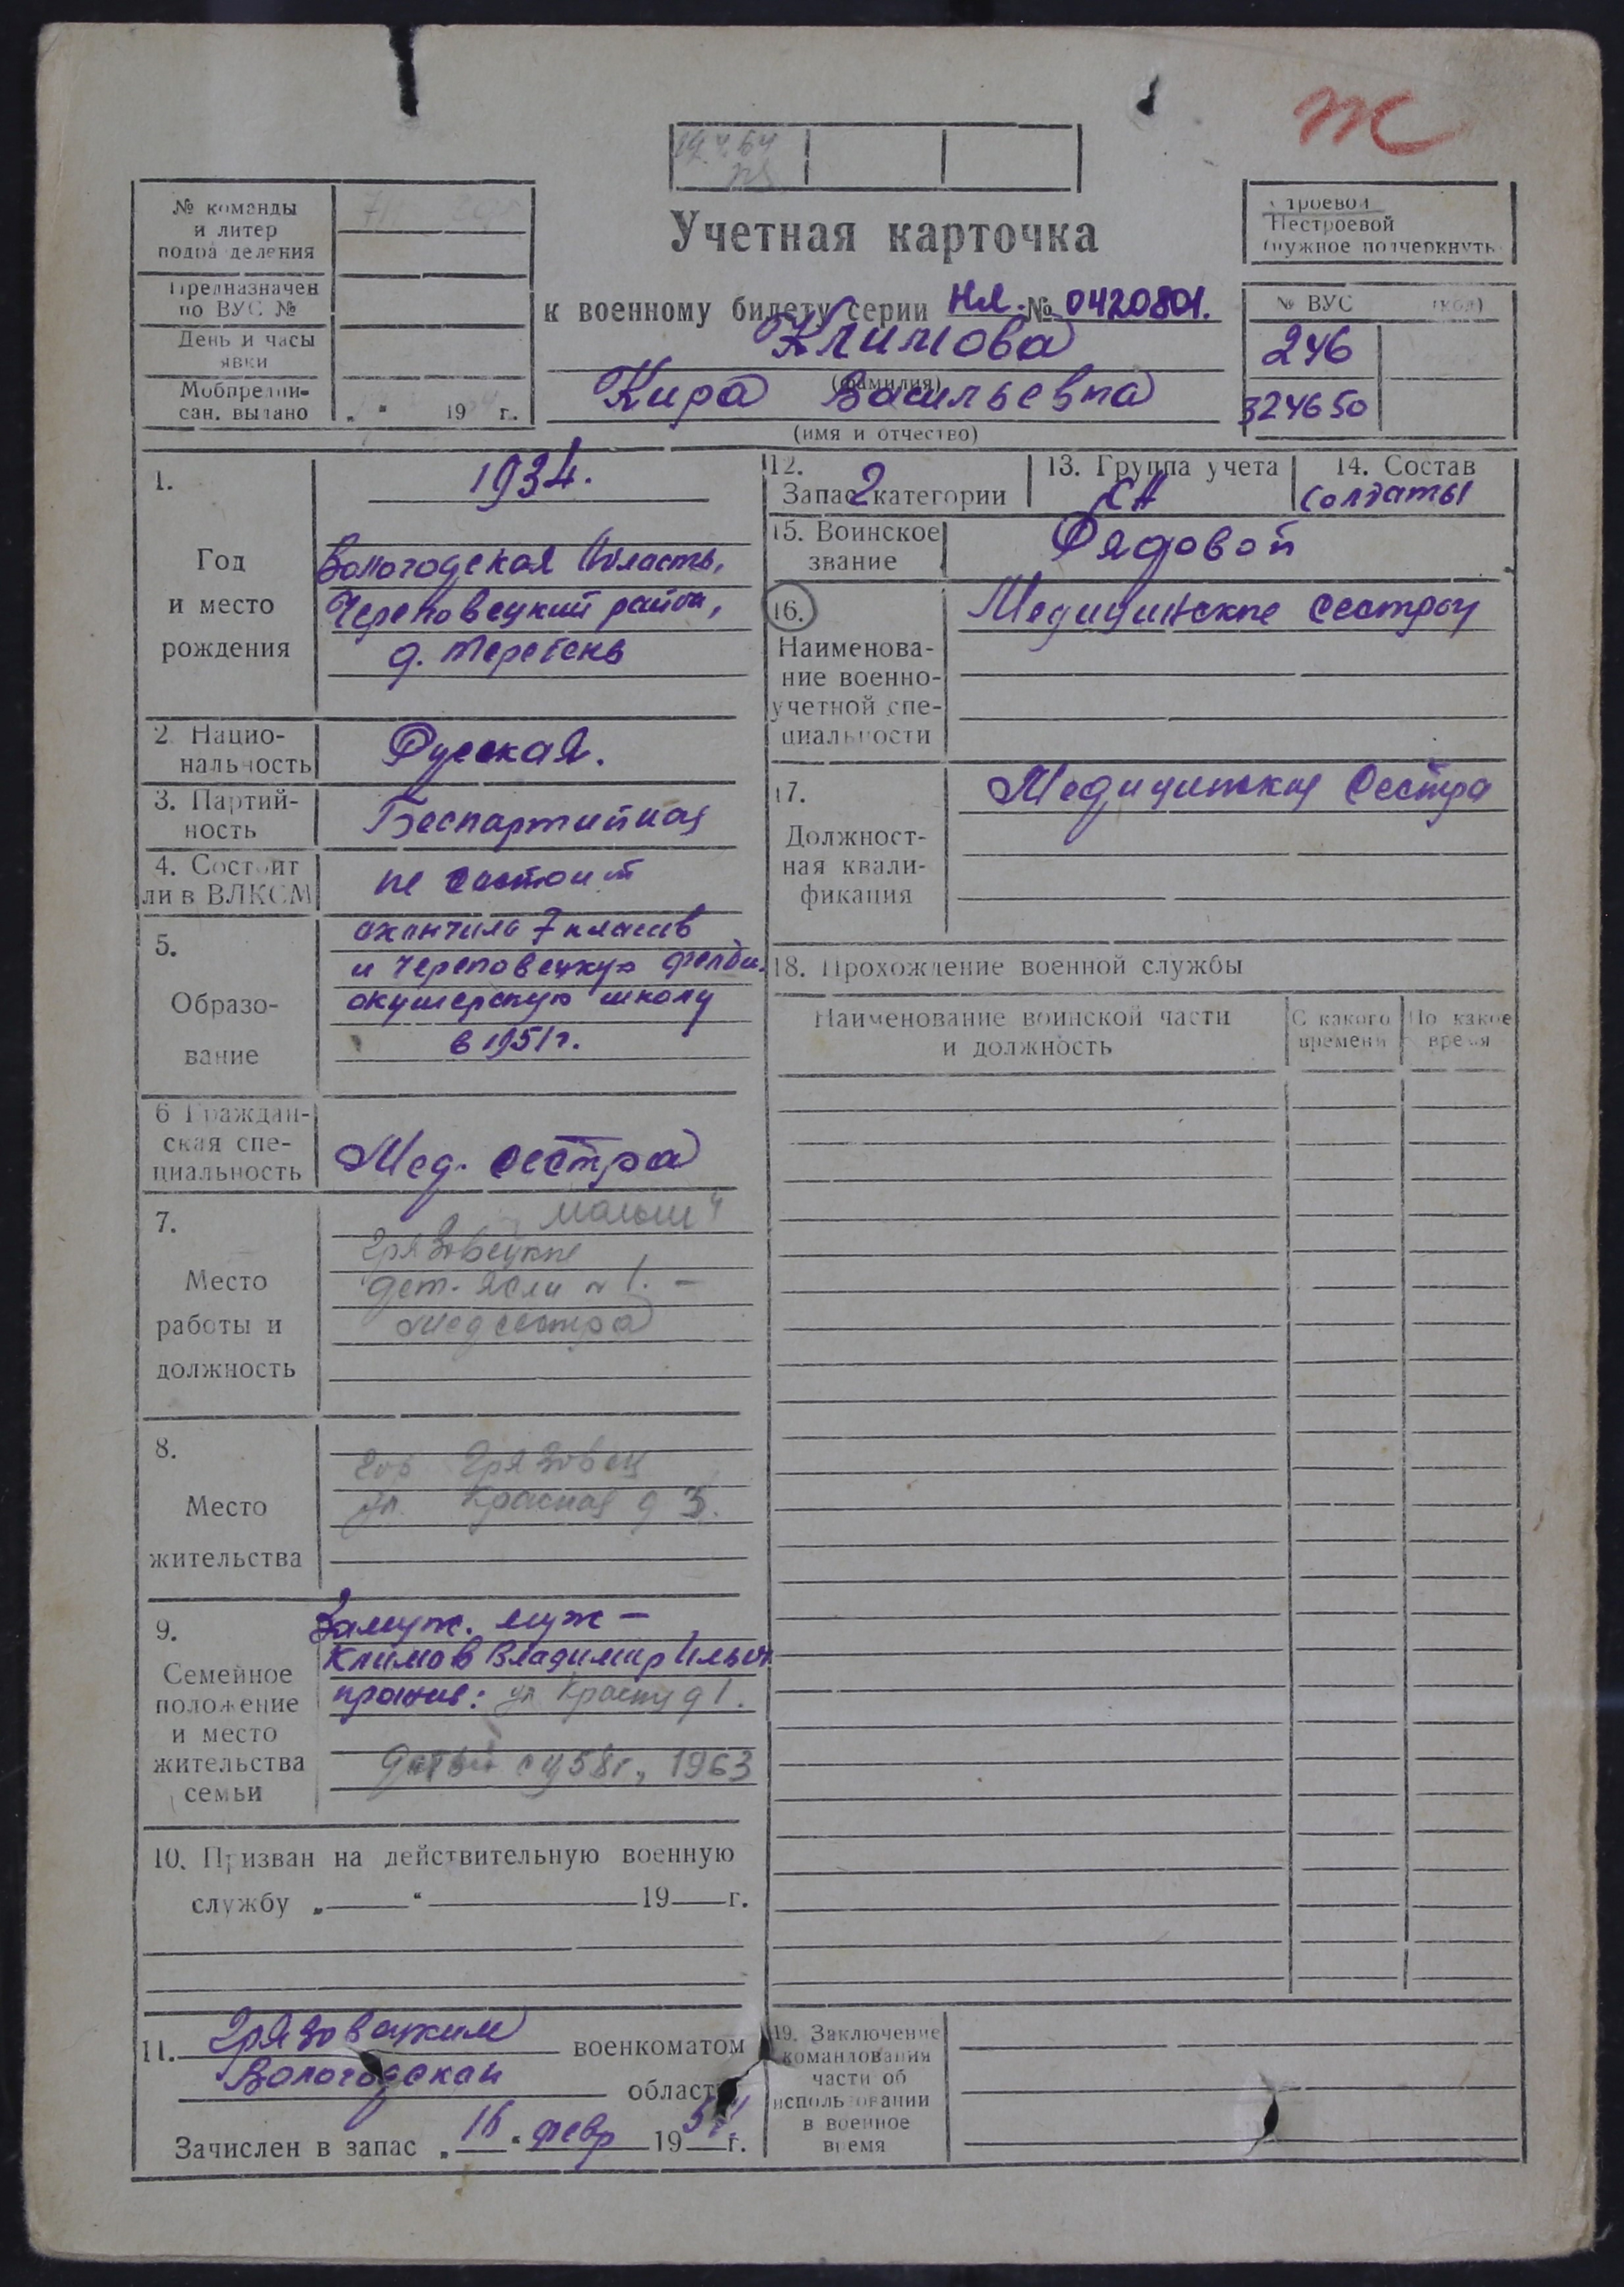 Ж
19.4.64
№ команды
и литер
подразделения
Предназначен
по ВУС №
День и часы
явки
Мобпредпи-
сан. выдано
„ “ 19 г.
Учетная карточка
к военному билету серии НЛ. № 0420801.
Климова
(фамилия)
Кира Васильевна
(имя и отчество)
Строевой
Нестроевой
(нужное подчеркнуть
№ ВУС (код)
246
324650
1.
Год
и место
рождения
1934.
Вологодская область,
Череповецкий район,
д.
2. Нацио-
нальность
Русская.
3. Партий-
ность
Беспартийная
4. Состоит
ли в ВЛКСМ
не состоит
5.
Образо-
вание
окончила 7 классов
и Череповецкую фельдш.
акушерскую школу
в 1951 г.
6 Граждан-
ская спе-
циальность
Мед. сестра
7.
Место
работы и
должность
Малыш"
Грязовецкие
дет. ясли № 1. –
Медсестра
8.
Место
жительства
гор Грязовец
ул. Красная д 3.
9.
Семейное
положение
и место
жительства
семьи
Замуж. муж –
Климов Владимир Ильич
прожив: ул д 1.
58 г., 1963
10. Призван на действительную военную
службу „ “ 19 г.
11. Грязовецким военкоматом
Вологодской области
Зачислен в запас „16“ февр 195 г.
12.
Запас 2 категории
13. Группа учета
СА
14. Состав
Солдаты
15. Воинское
звание
Рядовой
16.
Наименова-
ние военно-
учетной спе-
циальности
Медицинские сестры
17.
Должност-
ная квали-
фикация
Медицинская сестра
18. Прохождение военной службы
Наименование воинской части
и должность
С какого
времени
По какое
время
19. Заключение
командования
части об
использовании
в военное
время